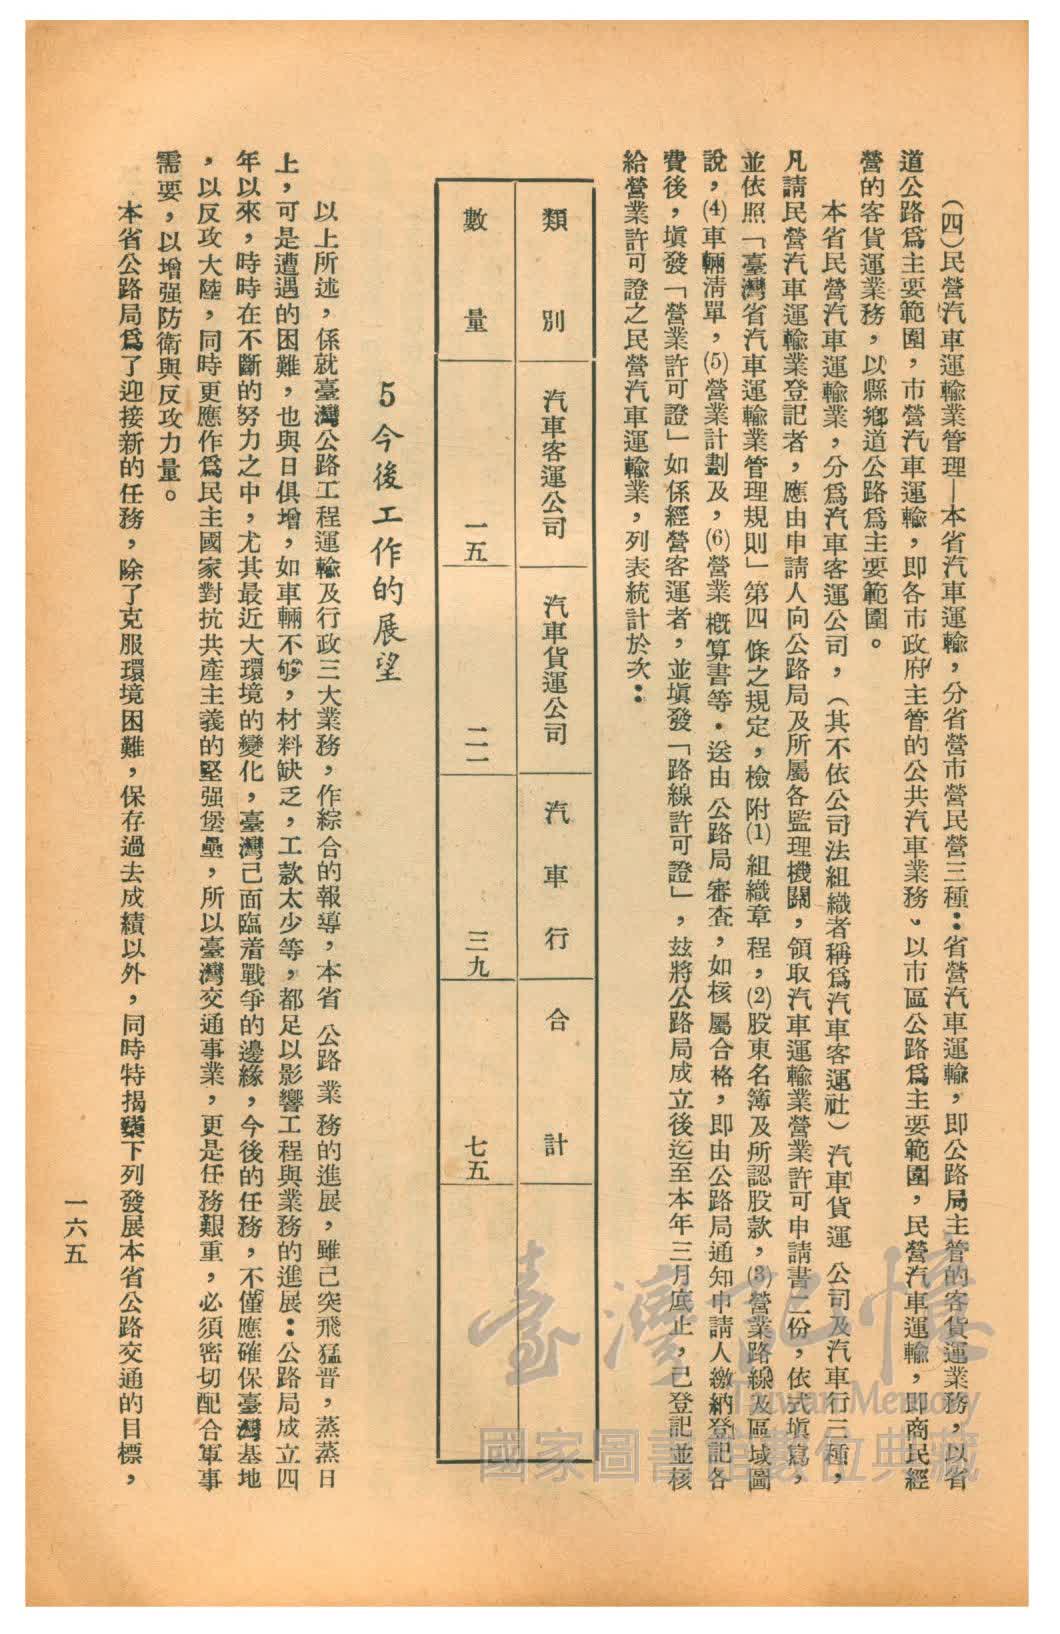 (四)民營汽車運輸業管理—本省汽車運輸，分省營市營民營三種：省營汽車運輸，即公路局主管的客貨運業務，以省
道公路爲主要範圍，市營汽車運輸，即各市政府主管的公共汽車業務、以市區公路爲主要範圍，民營汽車運輸，即商民經
營的客貨運業務，以縣鄉道公路爲主要範圍。
本省民營汽車運輸業，分爲汽車客運公司，(其不依公司法組織者稱爲汽車客運社)汽車貨運公司及汽車行三種，
凡請民營汽車運輸業登記者，應由申請人向公路局及所屬各監理機關，領取汽車運輸業營業許可申請書二份，依式填寫，
並依照「臺灣省汽車運輸業管理規則」第四條之規定，檢附(1)組織章程，(2)股東名簿及所認股款，(3)營業路線及區域圖
說，(4)車輛清單，(5)營業計劃及，(6)營業概算書等．送由公路局審查，如核屬合格，即由公路局通知申請人繳納登記各
費後，填發「營業許可證」如係經營客運者，並填發「路線許可證」，玆將公路局成立後迄至本年三月底止，已登記並核
給營業許可證之民營汽車運輸業，列表統計於次：
類別 汽車客運公司 汽車貨運公司 汽車行 合計
數量 一五 二一 三九 七五
5今後工作的展望
以上所述，係就臺灣公路工程運輸及行政三大業務，作綜合的報導，本省公路業務的進展，雖已突飛猛晉，蒸蒸日
上，可是遭遇的困難，也與日俱增，如車輛不够，材料缺乏，工款太少等，都足以影響工程與業務的進展：公路局成立四
年以來，時時在不斷的努力之中，尤其最近大環境的變化，臺灣己面臨着戰爭的邊緣，今後的任務，不僅應確保臺灣基地
，以反攻大陸，同時更應作爲民主國家對抗共產主義的堅强堡壘，所以臺灣交通事業，更是任務艱重，必須密切配合軍事
需要，以增强防衛與反攻力量。
本省公路局爲了迎接新的任務，除了克服環境困難，保存過去成績以外，同時特揭櫫下列發展本省公路交通的目標，
一六五
臺灣記憶
Taiwan Memory
國家圖書館數位典藏